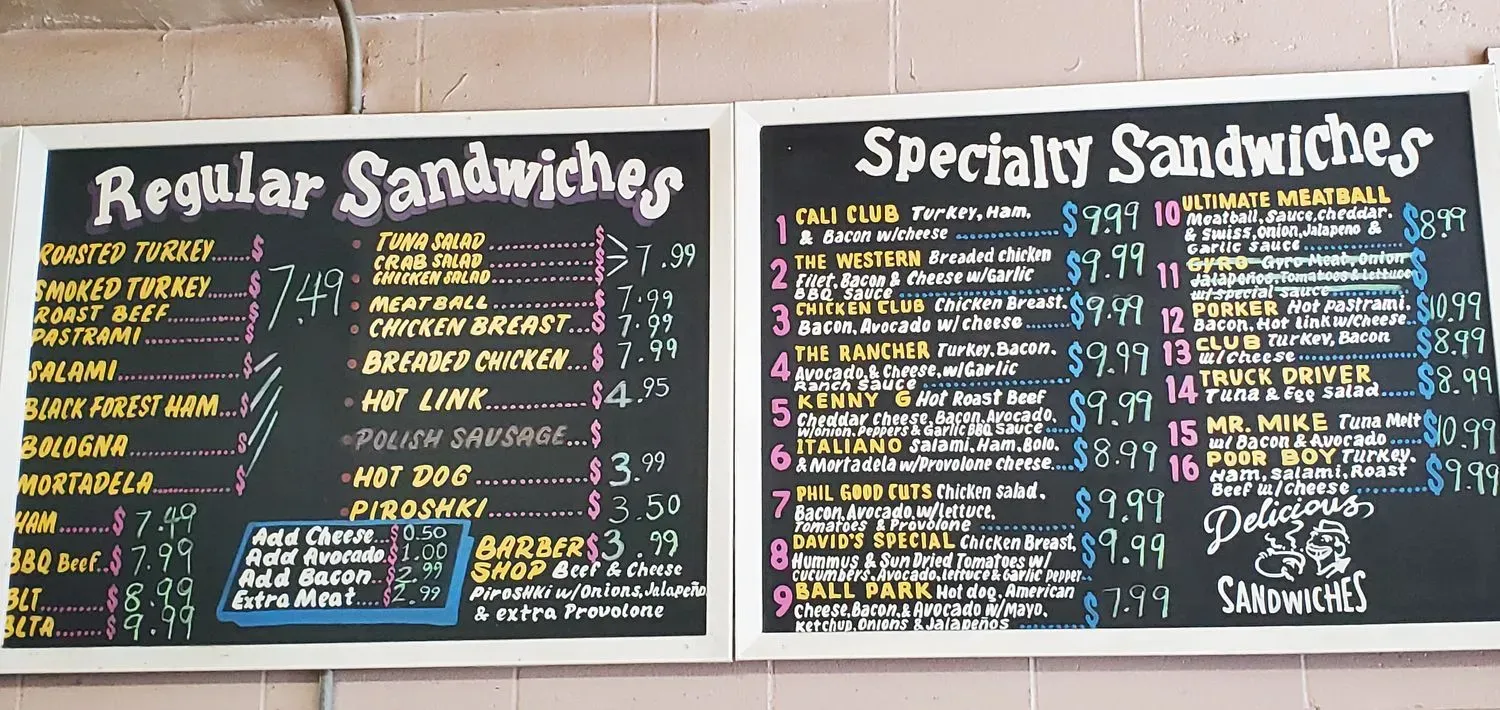 Regular Sandwiches
ROASTED TURKEY......$
SMOKED TURKEY
ROAST BEEF
PASTRAMI
7.49
SALAMI
BLACK FOREST HAM...$
BOLOGNA $
MORTADELA $
HAM $ 7.49
BBQ Beef..$ 7.99
BLT $ 8.99
BLTA $ 9.99
TUNA SALAD $
CRAB SALAD $
CHICKEN SALAD $
7.99
MEATBALL $ 7.99
CHICKEN BREAST...$ 7.99
BREADED CHICKEN...$ 7.99
HOT LINK $ 4.95
POLISH SAUSAGE...$
HOT DOG $ 3.99
PIROSHKI $ 3.50
Add Cheese...$ 0.50
Add Avocado.$ 1.00
Add Bacon..$ 2.99
Extra Meat....$ 2.99
BARBER $3.99
SHOP Beef & Cheese
Piroshki w/Onions, Jalapeño
& extra Provolone
Specialty Sandwiches
1 CALI CLUB Turkey, Ham,
& Bacon w/cheese $9.99
2 THE WESTERN Breaded chicken
Filet, Bacon & Cheese w/Garlic $9.99
BBQ Sauce
3 CHICKEN CLUB Chicken Breast,
Bacon, Avocado w/cheese $9.99
4 THE RANCHER Turkey, Bacon,
Avocado & Cheese, w/Garlic $9.99
Ranch Sauce
5 KENNY G Hot Roast Beef
Cheddar Cheese, Bacon, Avocado, $9.99
w/onion, Peppers & Garlic BBQ Sauce
6 ITALIANO Salami, Ham, Bolo.
& Mortadela w/Provolone cheese....$8.99
7 PHIL GOOD CUTS Chicken salad,
Bacon, Avocado, w/lettuce, $9.99
Tomatoes & Provolone
8 DAVID'S SPECIAL Chicken Breast,
Hummus & Sun Dried Tomatoes w/ $9.99
cucumbers, Avocado, lettuce & Garlic Pepper
9 BALL PARK Hot dog, American
Cheese, Bacon, & Avocado w/Mayo, $7.99
Ketchup, Onions & Jalapeños
10 ULTIMATE MEATBALL
Meatball, Sauce, cheddar,
& Swiss, Onion, Jalapeno & $8.99
Garlic sauce
11 GYRO Gyro Meat, Onion
Jalapeños, Tomatoes & Lettuce $
w/special Sauce
12 PORKER Hot pastrami,
Bacon, Hot link w/Cheese..$10.99
13 CLUB Turkey, Bacon
w/cheese $8.99
14 TRUCK DRIVER
Tuna & Egg salad $8.99
15 MR. MIKE Tuna Melt
w/ Bacon & Avocado $10.99
16 POOR BOY Turkey,
Ham, Salami, Roast
Beef w/cheese $9.99
Delicious
SANDWICHES